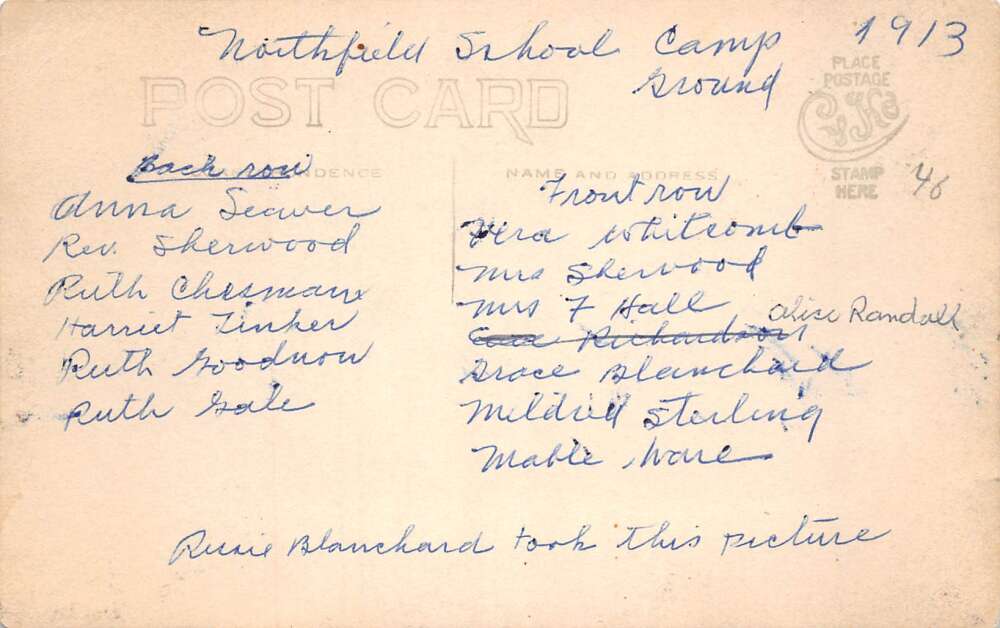 Northfield School Camp 1913
Ground
POST CARD
PLACE
POSTAGE
STAMP
HERE
46
NAME AND ADDRESS
Back row
Anna Seaver
Rev. Sherwood
Ruth Chesman
Harriet Tinker
Ruth Goodnow
Ruth Gale
Front row
Vera Whitcomb
Mrs Sherwood
Mrs F Hall
Richardson Alise Randall
Grace Blanchard
Mildred Sterling
Mable Ware
Blanchard took this picture